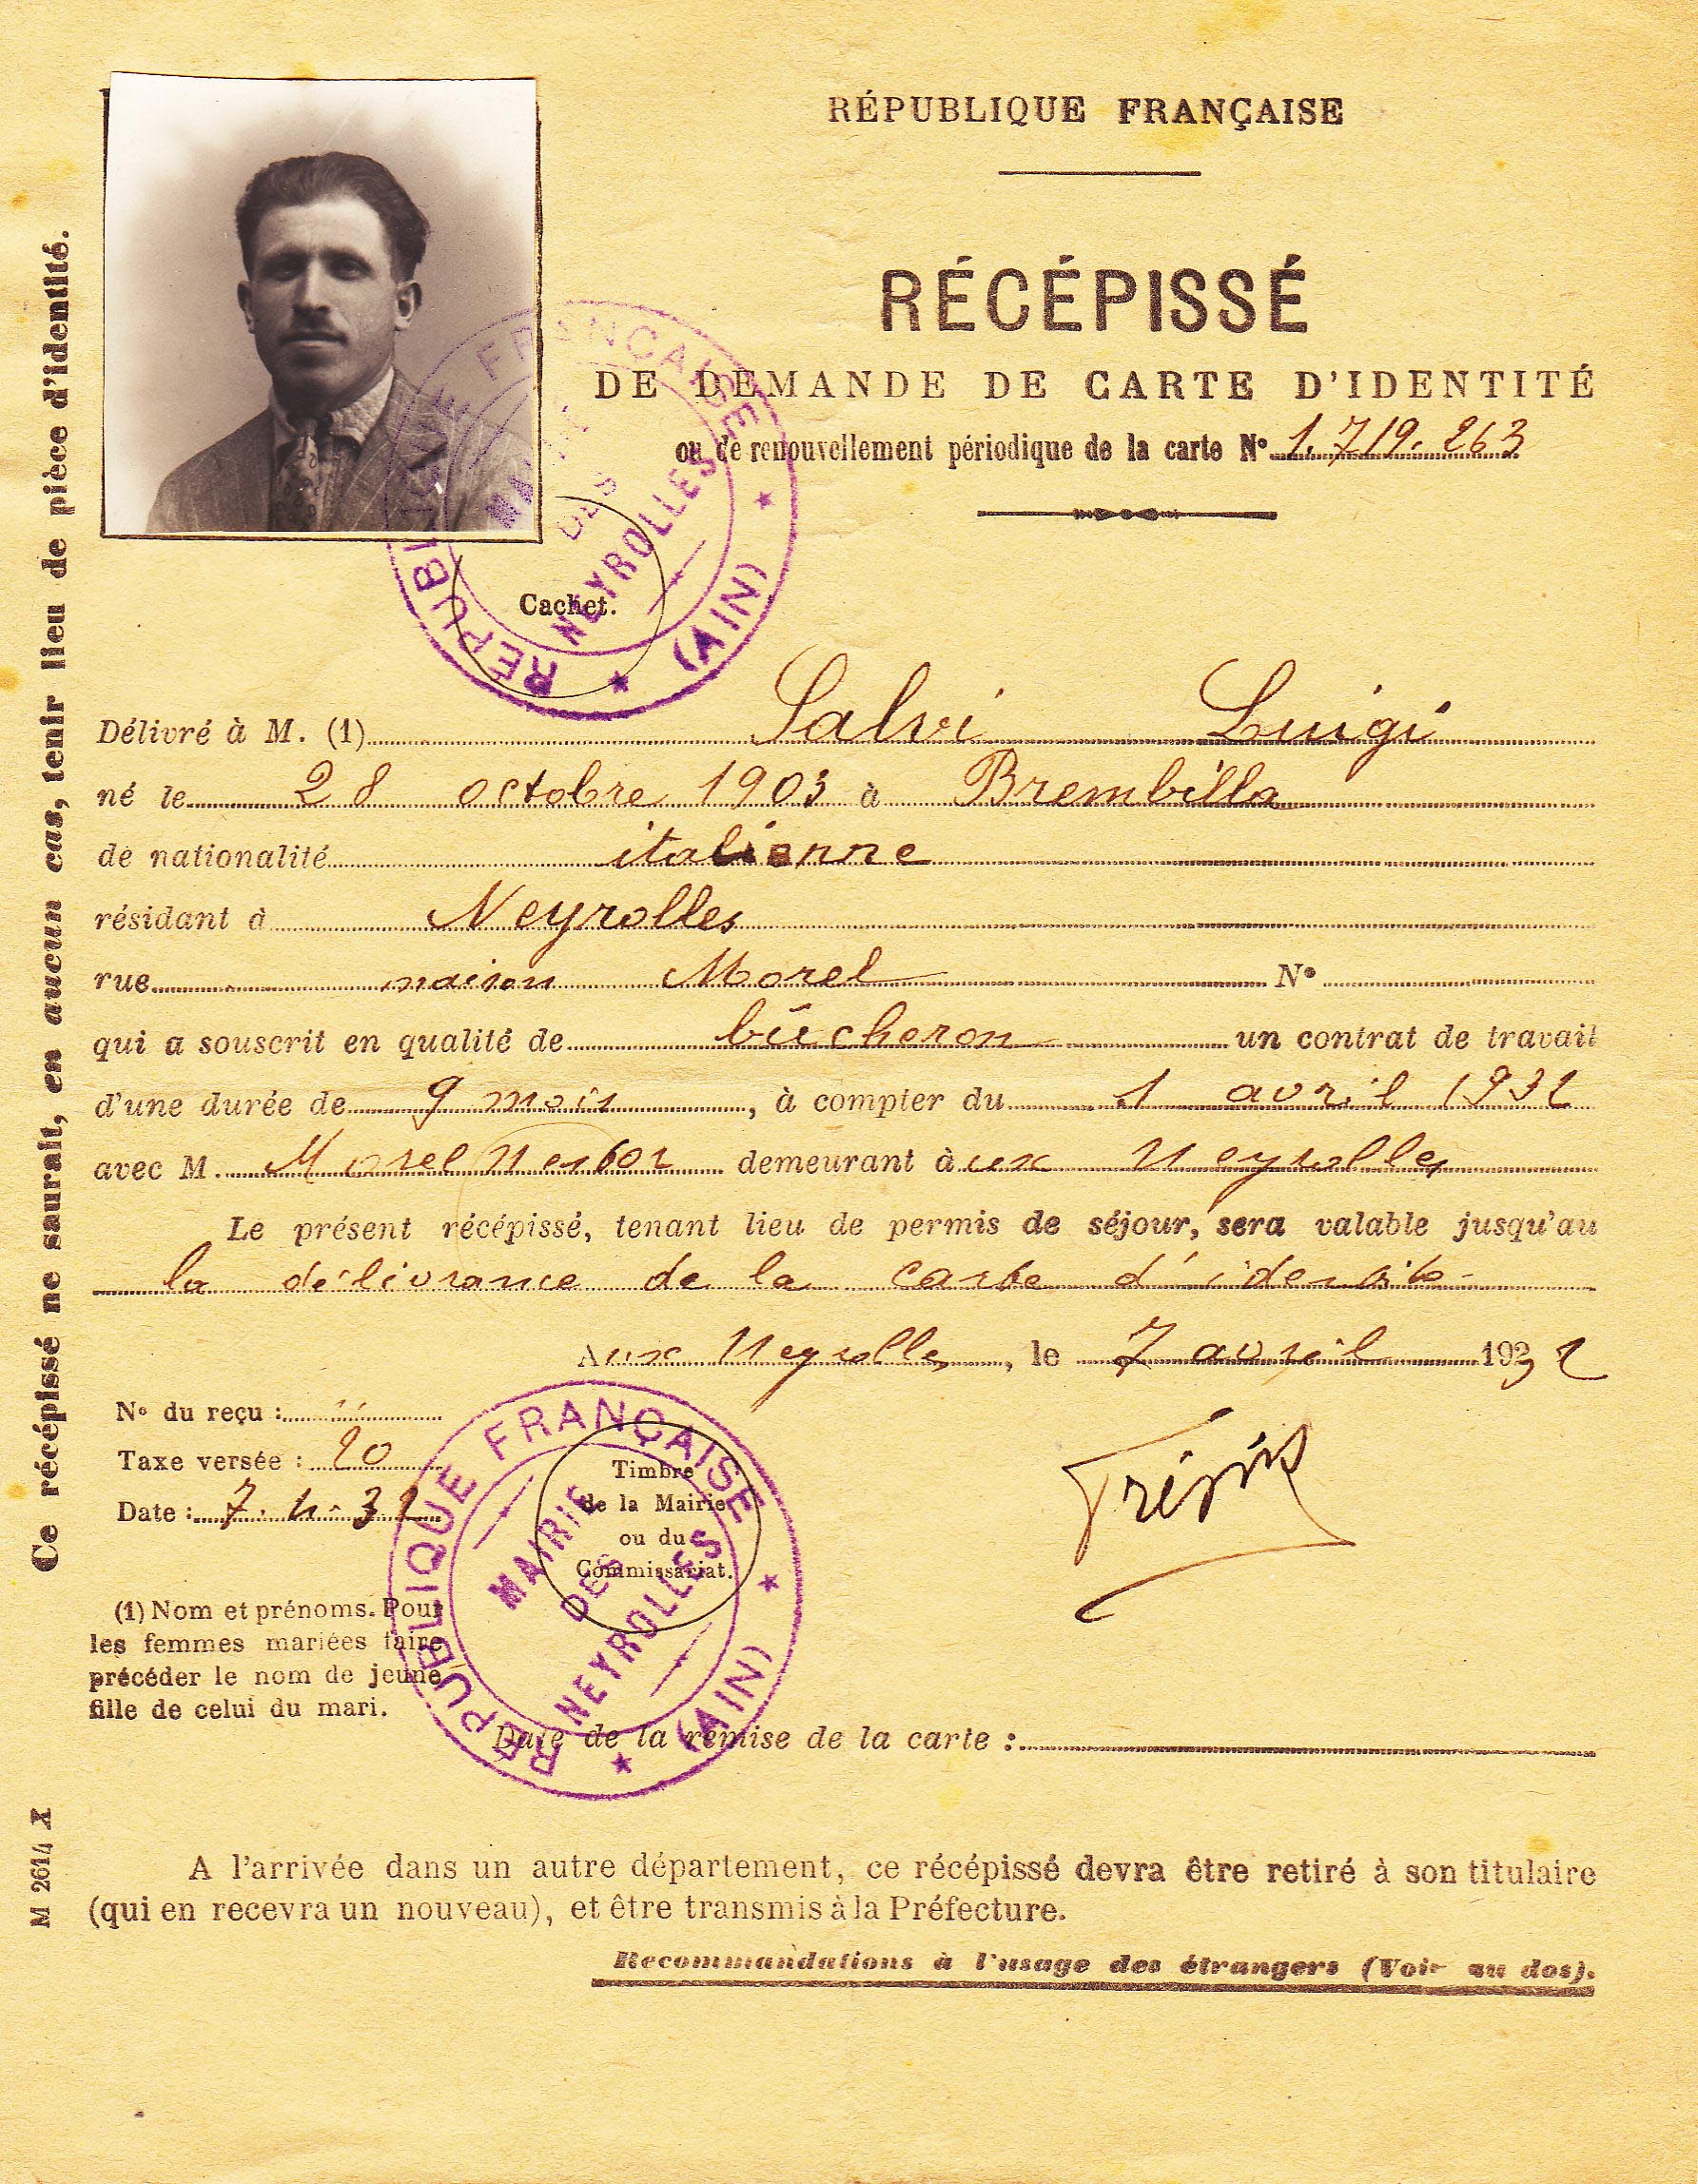 RÉPUBLIQUE FRANÇAISE
RÉCÉPISSÉ
DE DEMANDE DE CARTE D'IDENTITÉ
ou de renouvellement périodique de la carte N° 1.719.263
REPUBLIQUE FRANÇAISE
MAIRIE
DES
NEYROLLES
(AIN)
Cachet.
Délivré à M. (1) Salvi Luigi
né le 28 octobre 1903 à Brembilla
de nationalité italienne
résidant à Neyrolles
rue maison Morel N°
qui a souscrit en qualité de bûcheron un contrat de travail
d'une durée de 9 mois, à compter du 1 avril 1932
avec M. Morel demeurant à ux Neyrolles
Le présent récépissé, tenant lieu de permis de séjour, sera valable jusqu'au
la délivrance de la carte d'identité
Aux Neyrolles, le 7 avril 1932
N° du reçu : "
Taxe versée : 20
Date : 7.4.32
REPUBLIQUE FRANÇAISE
MAIRIE
DES
NEYROLLES
(AIN)
Timbre
de la Mairie
ou du
Commissariat.
(1) Nom et prénoms. Pour
les femmes mariées faire
précéder le nom de jeune
fille de celui du mari.
Date de la remise de la carte :
A l'arrivée dans un autre département, ce récépissé devra être retiré à son titulaire
(qui en recevra un nouveau), et être transmis à la Préfecture.
Recommandations à l'usage des étrangers (Voir au dos).
Ce récépissé ne saurait, en aucun cas, tenir lieu de pièce d'identité.
M 2614 X